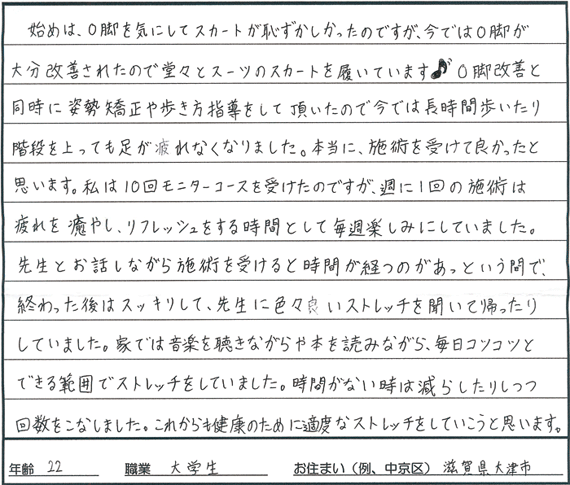 始めは、O脚を気にしてスカートが恥ずかしかったのですが、今ではO脚が
大分改善されたので堂々とスーツのスカートを履いています♪ O脚改善と
同時に姿勢矯正や歩き方指導をして頂いたので今では長時間歩いたり
階段を上っても足が疲れなくなりました。本当に、施術を受けて良かったと
思います。私は10回モニターコースを受けたのですが、週に1回の施術は
疲れを癒やし、リフレッシュをする時間として毎週楽しみにしていました。
先生とお話しながら施術を受けると時間が経つのがあっという間で、
終わった後はスッキリして、先生に色々良いストレッチを聞いて帰ったり
していました。家では音楽を聴きながらや本を読みながら、毎日コツコツと
できる範囲でストレッチをしていました。時間がない時は減らしたりしつつ
回数をこなしました。これからも健康のために適度なストレッチをしていこうと思います。
年齢 22 職業 大学生 お住まい（例、中京区） 滋賀県大津市